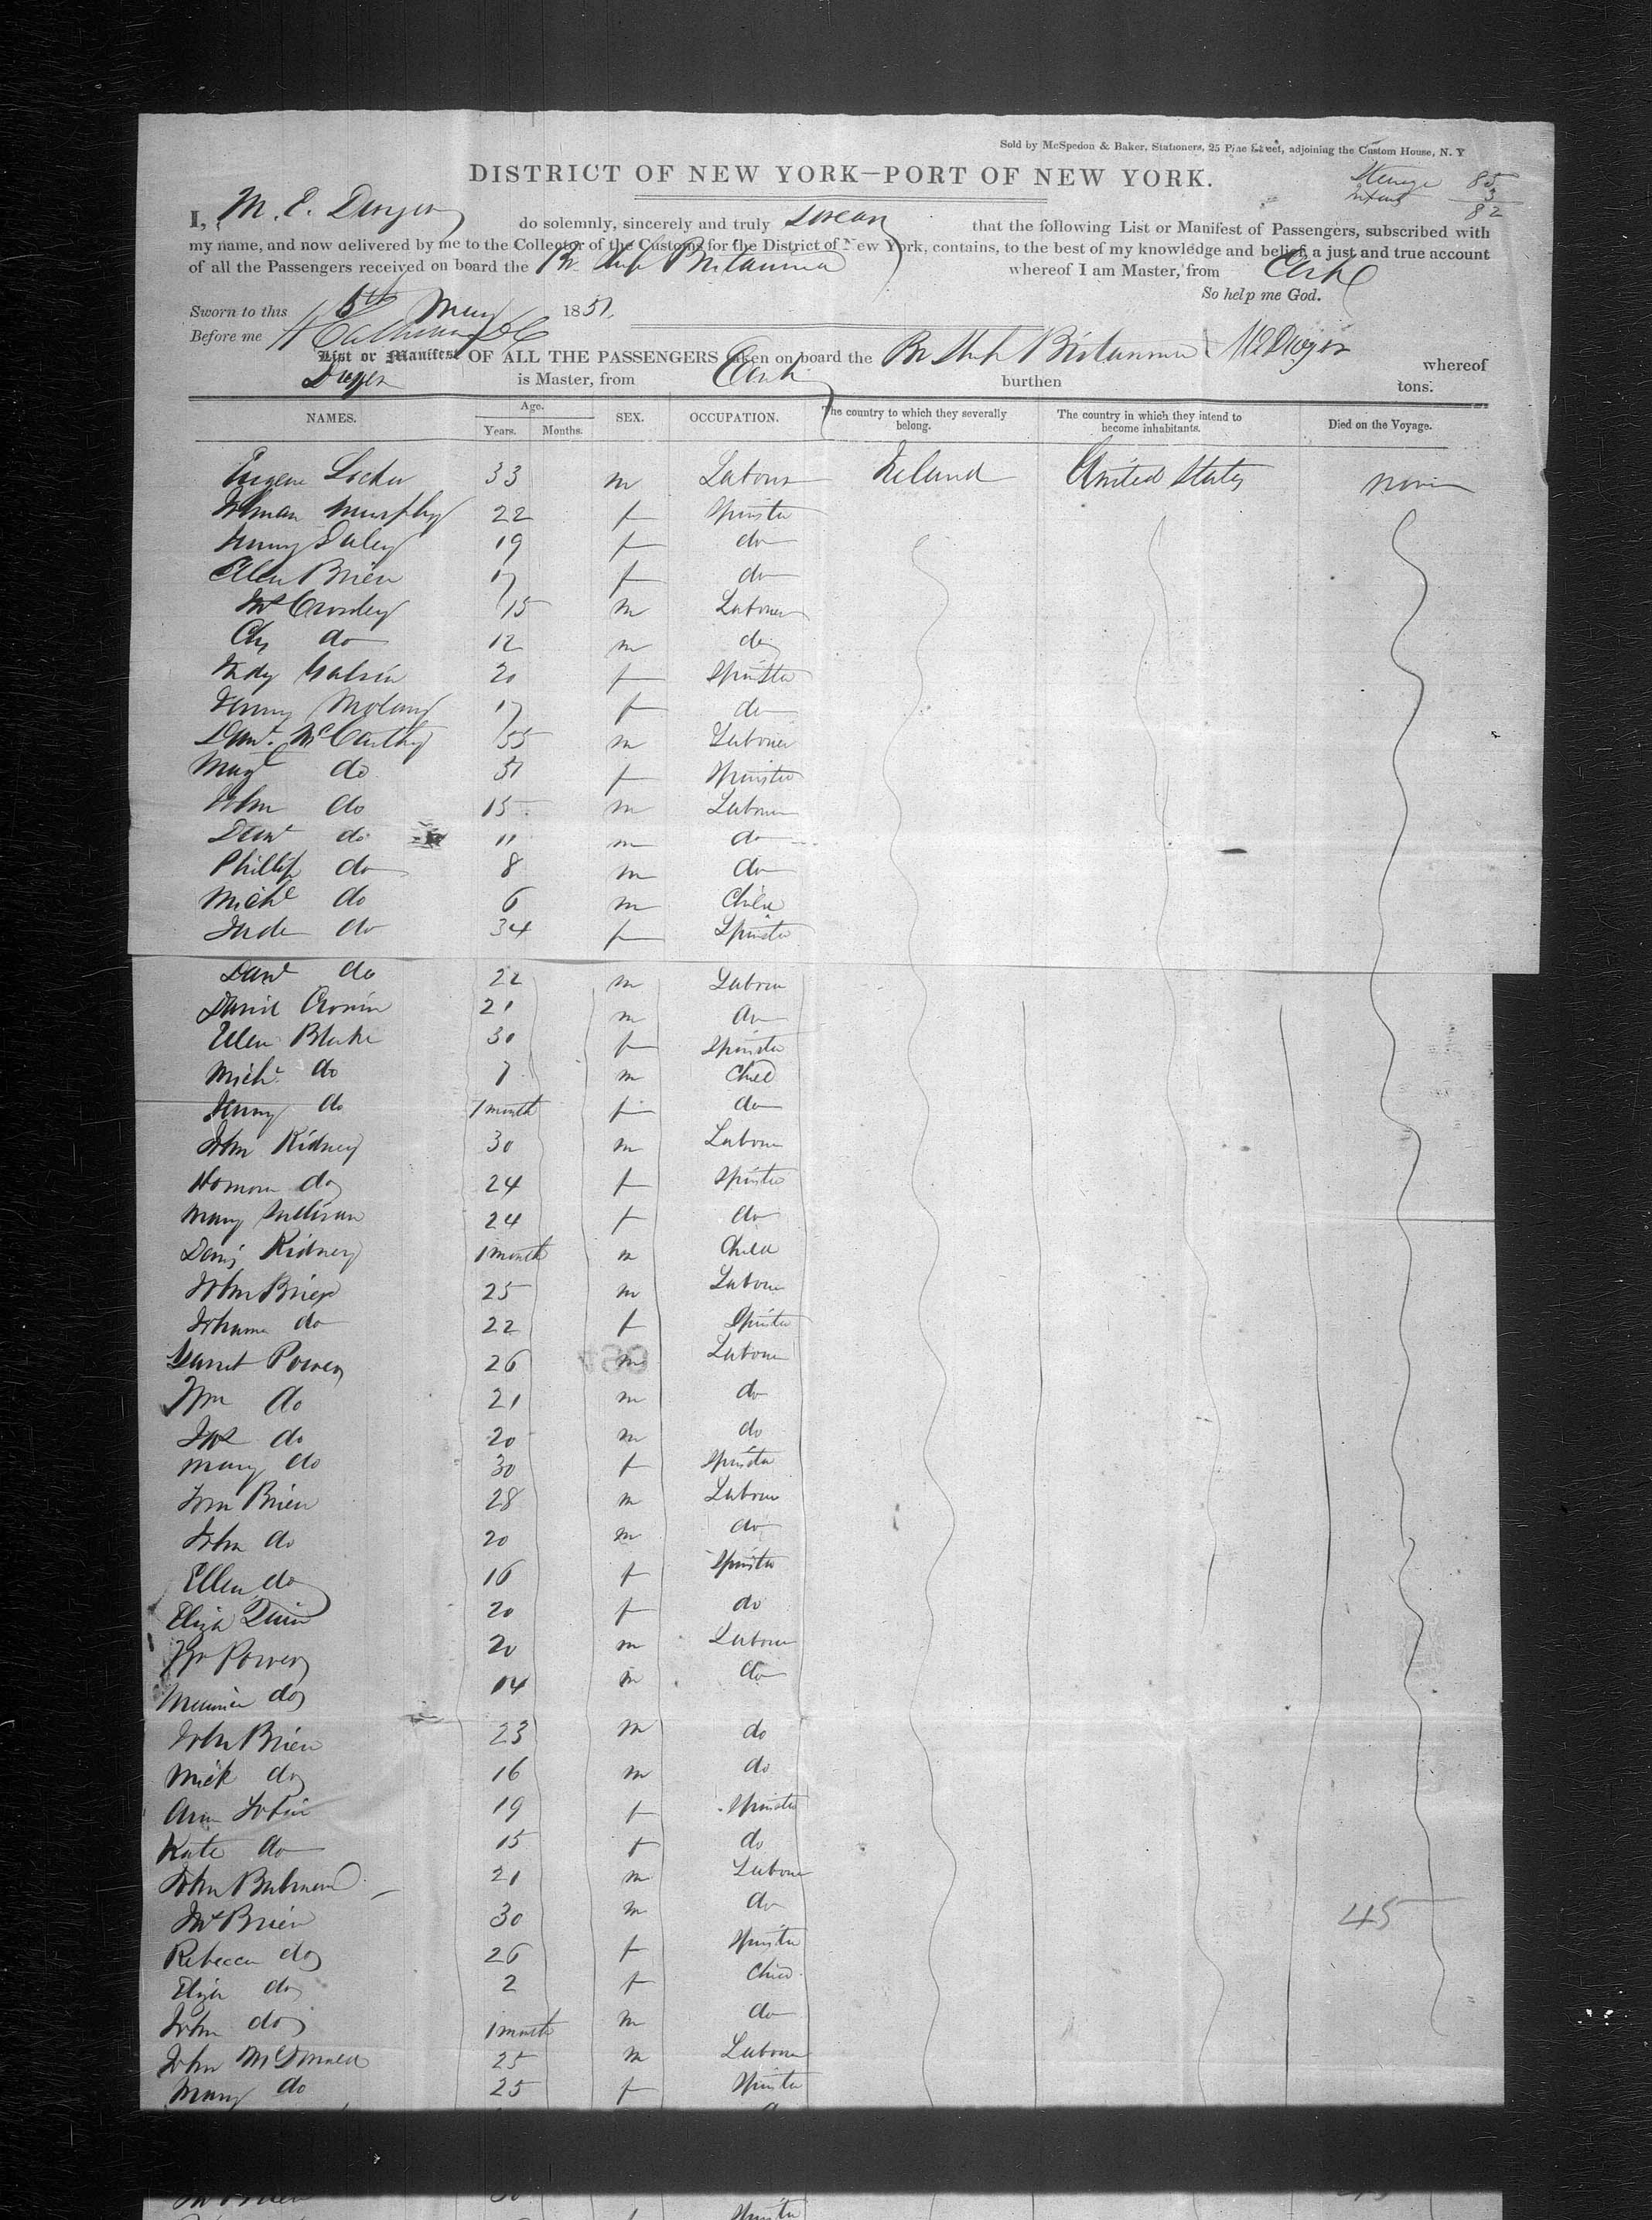 Sold by McSpedon & Baker, Stationers, 25 Pine Street, adjoining the Custom House, N. Y
DISTRICT OF NEW YORK—PORT OF NEW YORK.
85
3
82
I, M. E. do solemnly, sincerely and truly swear that the following List or Manifest of Passengers, subscribed with
my name, and now delivered by me to the Collector of the Customs for the District of New York, contains, to the best of my knowledge and belief, a just and true account
of all the Passengers received on board the Br Ship Britannia whereof I am Master, from Cork
So help me God.
Sworn to this 5th May 1851.
Before me
List or Manifest OF ALL THE PASSENGERS taken on board the Br Ship Britannia whereof
is Master, from Cork burthen tons.
NAMES. Age. Years. Months. SEX. OCCUPATION. The country to which they severally belong. The country in which they intend to become inhabitants. Died on the Voyage.
Eugene 33 m Labour Ireland United States
Murphy 22 f Spinster
Daley 19 f do
Ellen Brien 17 f do
Crowley 15 m Labourer
do 12 m do
20 f Spinster
17 f do
Danl. McCarthy 55 m Labourer
Magt do 51 f Spinster
John do 15 m Labour
Danl do 11 m do
Phillip do 8 m do
Michl do 6 m Child
do 34 f Spinster
Danl do 22 m Labour
David Cronin 21 m do
Ellen Blake 30 f Spinster
Michl do 7 m Child
do 1 month f do
John Kidney 30 m Labour
do 24 f Spinster
Mary Sullivan 24 f do
Denis Kidney 1 month m Child
John Brien 25 m Labour
Johanna do 22 f Spinster
Garret Power 26 m Labour
Wm do 21 m do
do 20 m do
Mary do 30 f Spinster
Brien 28 m Labour
John do 20 m do
Ellen do 16 f Spinster
Eliza Quin 20 f do
Power 20 m Labour
Maurice do 14 m do
John Brien 23 m do
Mick do 16 m do
Ann Tobin 19 f Spinster
Kate do 15 f do
John 21 m Labour
Brien 30 m do 45
Rebecca do 26 f Spinster
Eliza do 2 f Child
John do 1 month m do
John McDonald 25 m Labour
Mary do 25 f Spinster